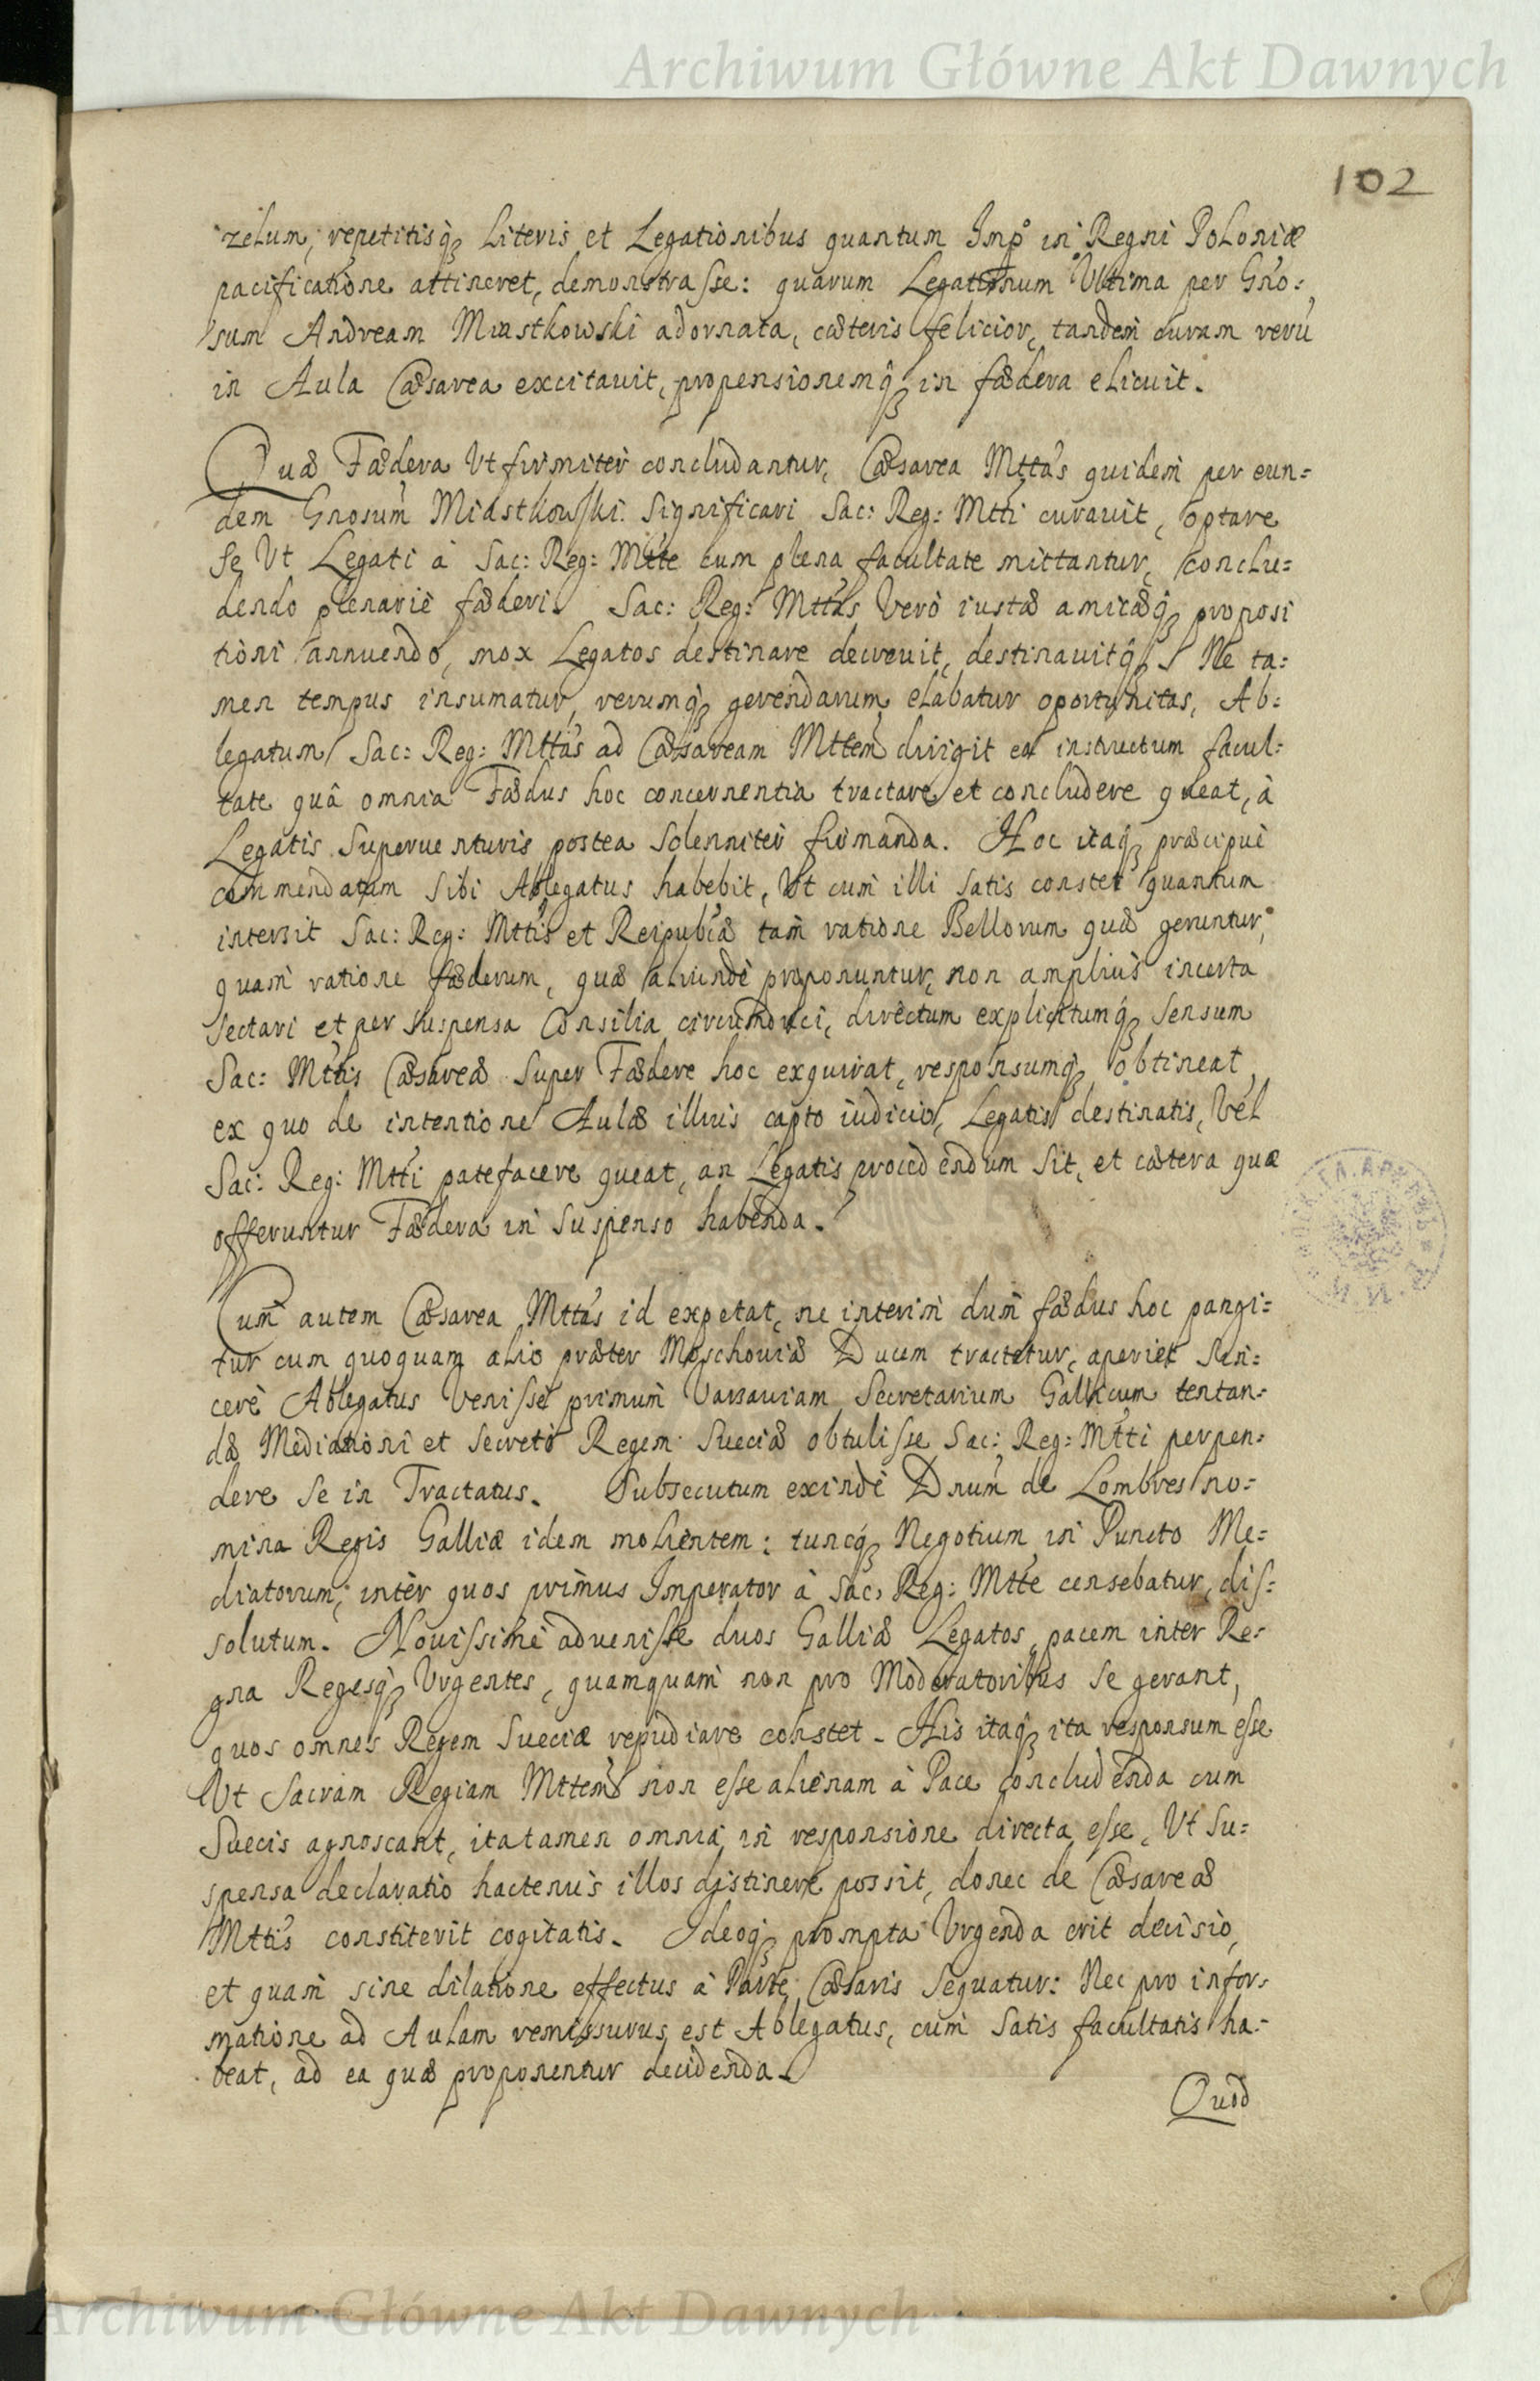 Archiwum Główne Akt Dawnych
102
zelum, repetitisq̃ Literis et Legationibus quantum Impº in Regni Poloniæ
pacificatione attineret, demonstrasse: quarum Legationum Ultima per Gño:
sum Andream Miastkowski adornata, cæteris felicior, tandem curam verũ
in Aula Cæsarea excitauit, propensionemq̃ in fædera elicuit.
Quæ Fædera Ut firmiter concludantur, Cæsarea Mttas quidem per eun:
dem Gnosum Miastkowski significari Sac: Reg: Mtti curauit, optare
se Ut Legati à Sac: Reg: Mtte cum plena facultate mittantur, conclu:
dendo plenariè fæderi. Sac: Reg: Mttas Verò iustæ amicæq̃ proposi
tioni annuendo, mox Legatos destinare decreuit, destinauitq̃. Ne ta:
men tempus insumatur, rerumq̃ gerendarum elabatur oportunitas, Ab:
legatum Sac: Reg: Mttas ad Cæsaream Mttem dirigit ea instructum facul:
tate quâ omnia Fædus hoc concernentia tractare et concludere queat, à
Legatis Superuenturis postea Solenniter firmanda. Hoc itaq̃ præcipuè
commendatum sibi Ablegatus habebit, Ut cum illi satis constet quantum
intersit Sac: Reg: Mttis et Reipublcæ tam ratione Bellorum quæ geruntur,
quam ratione fæderum, quæ aliundè proponuntur, non amplius incerta
sectari et per suspensa Consilia circumduci, directum explicitumq̃ sensum
Sac: Mttis Cæsareæ super Fædere hoc exquirat, responsumq̃ obtineat,
ex quo de intentione Aulæ illius capto iudicio, Legatis destinatis, Vel
Sac: Reg: Mtti patefacere queat, an Legatis procedendum sit, et cætera quæ
offeruntur Fædera in suspenso habenda.
Cum autem Cæsarea Mttas id expetat, ne interim dum fædus hoc pangi:
tur cum quoquam alio præter Moschouiæ Ducem tractetur, aperiet sin:
cerè Ablegatus Venisse primum Varsauiam Secretarium Gallicum tentan:
dæ Mediationi et secretò Regem Sueciæ obtulisse Sac: Reg: Mtti perpen:
dere se in Tractatus. Subsecutum exinde Dnum de Lombres no:
mina Regis Galliæ idem molientem: tuncq̃ Negotium in Puncto Me:
diatorum, inter quos primus Imperator à Sac: Reg: Mtte censebatur, dis:
solutum. Nouissimè aduenisse duos Galliæ Legatos, pacem inter Re:
gna Regesq̃ Urgentes, quamquam non pro Moderatoribus se gerant,
quos omnes Regem Sueciæ repudiare constet. His itaq̃ ita responsum esse
Ut Sacram Regiam Mttem non esse alienam à Pace concludenda cum
Suecis agnoscant, ita tamen omnia in responsione directa esse, Ut su:
spensa declaratio hactenus illos distinere possit, donec de Cæsareæ
Mttis constiterit cogitatis. Ideoq̃ prompta Urgenda erit decisio,
et quam sine dilatione effectus à Parte Cæsaris sequatur: Nec pro infor:
matione ad Aulam remissurus est Ablegatus, cum satis facultatis ha:
beat, ad ea quæ proponentur decidenda.
Quod
Archiwum Główne Akt Dawnych